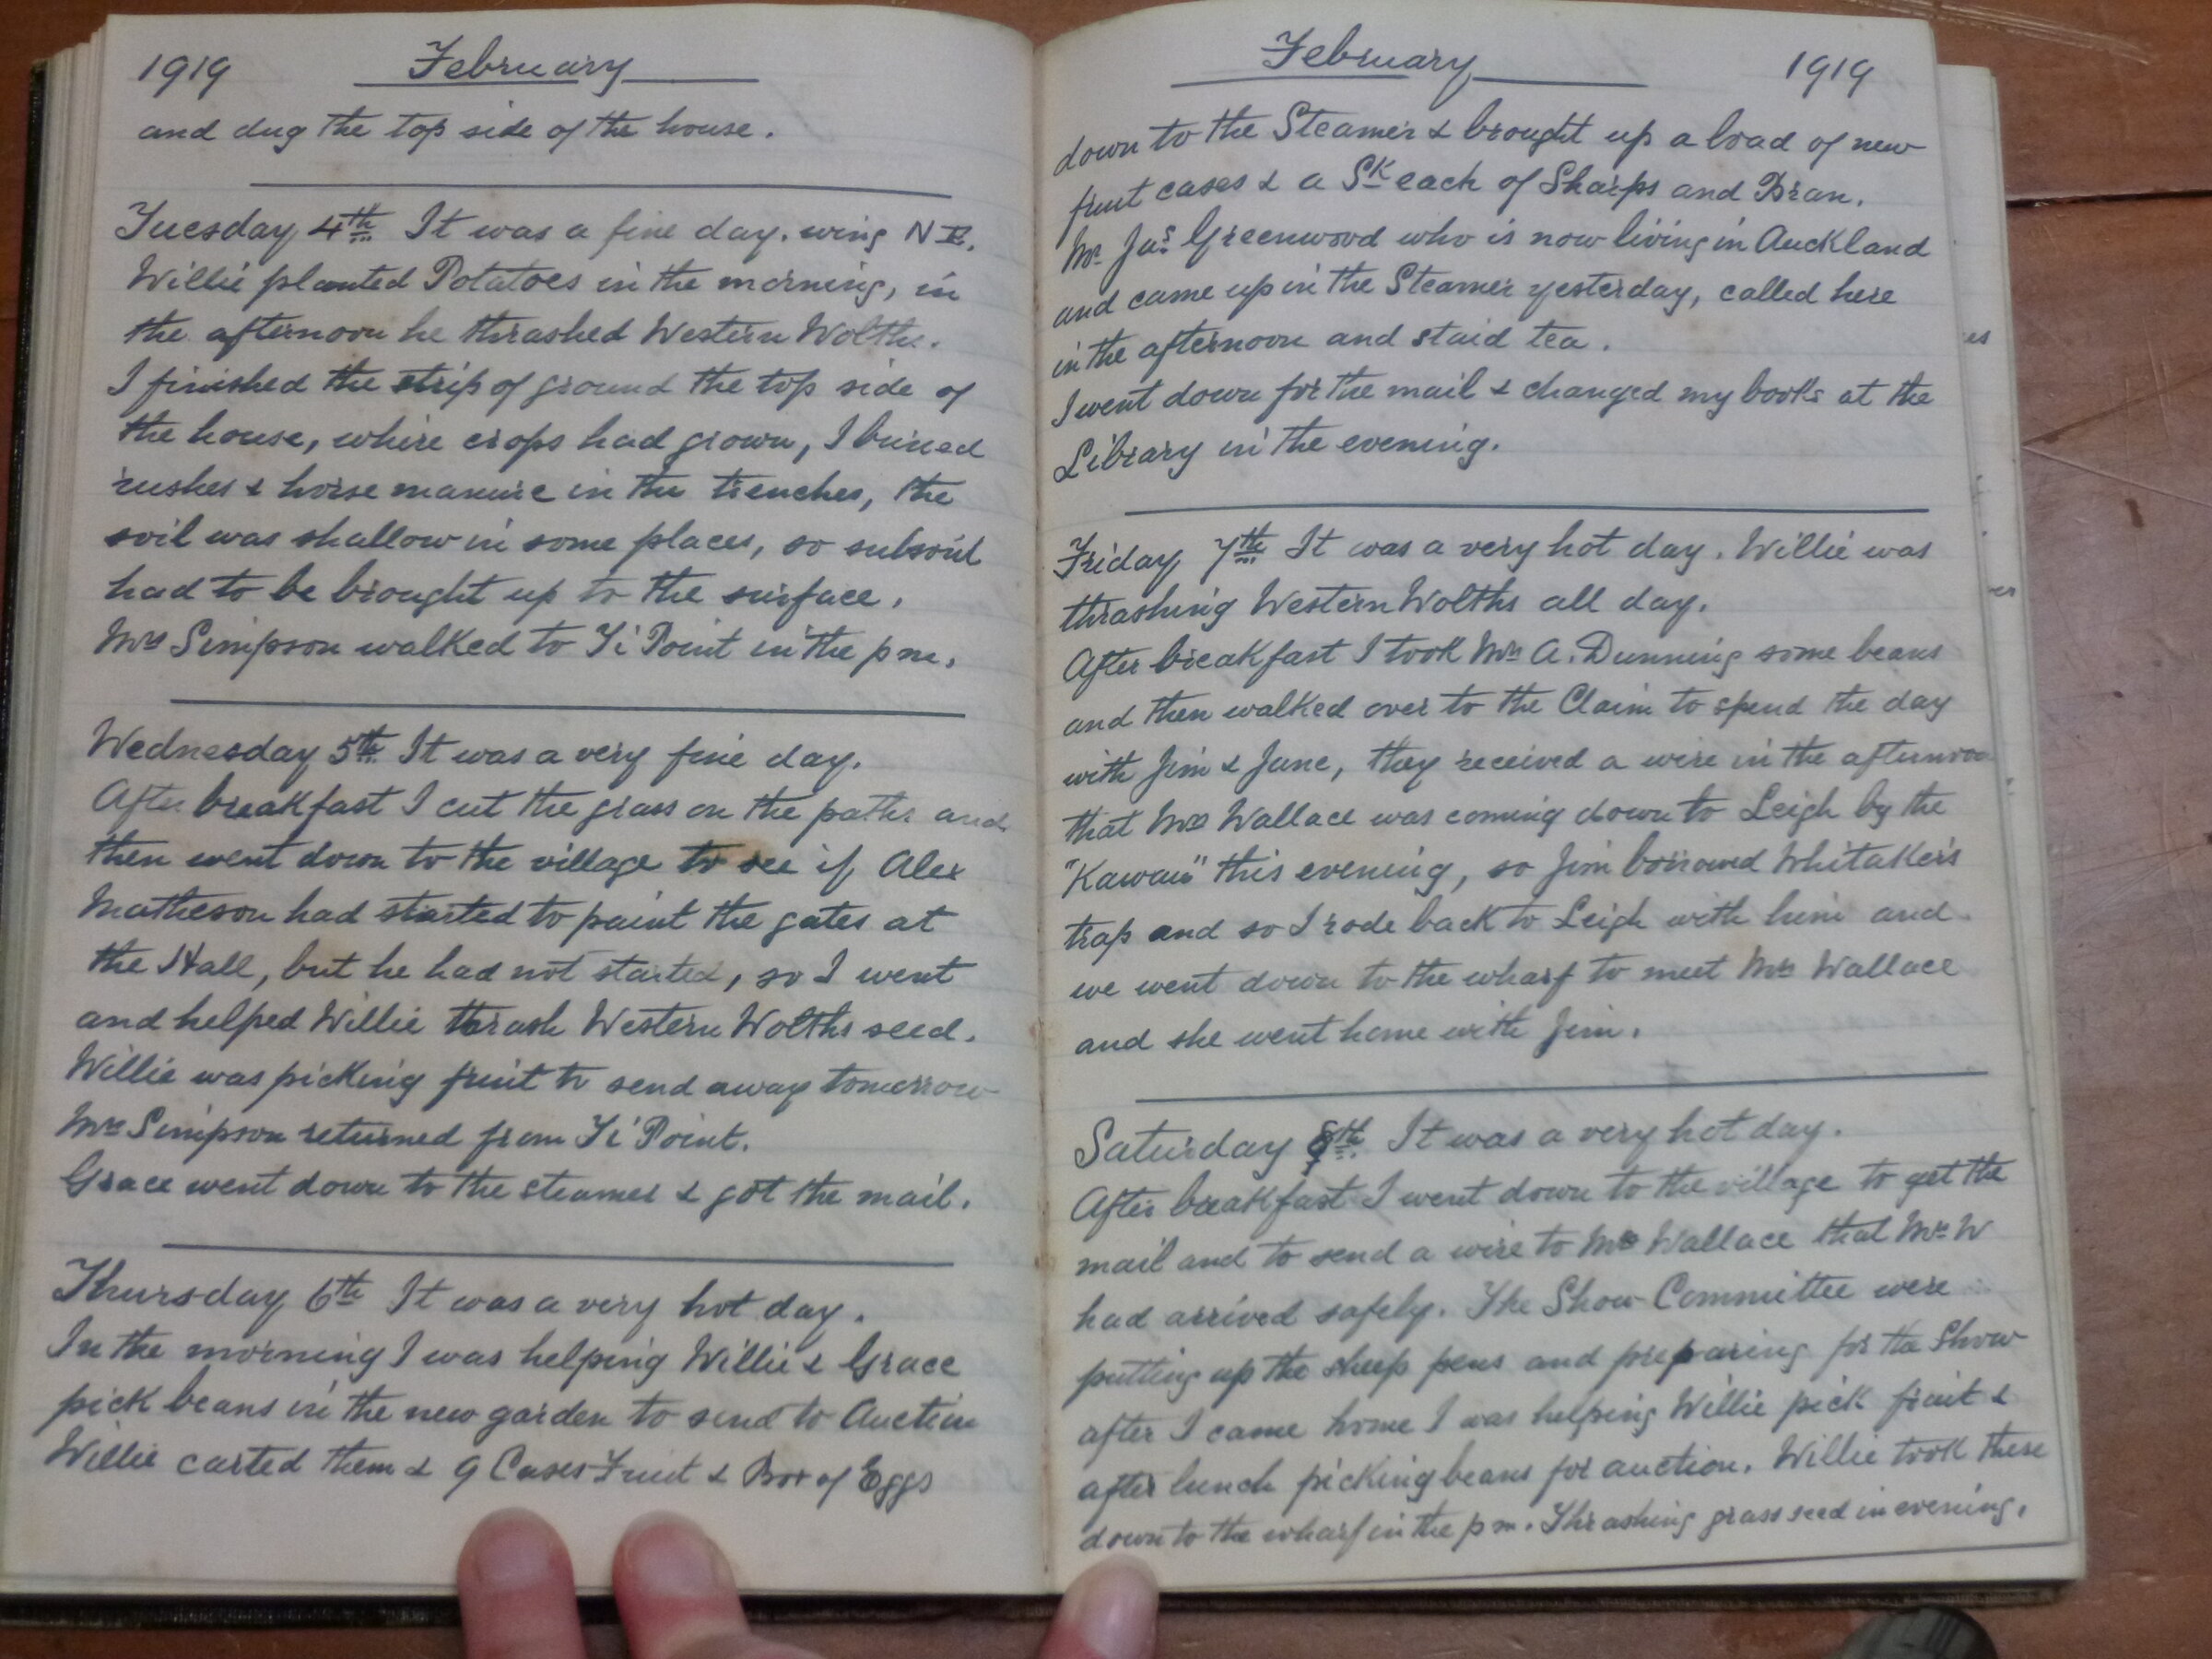 1919 February
and dug the top side of the house.
Tuesday 4th It was a fine day. wing N E.
Willie planted Potatoes in the morning, in
the afternoon he thrashed Western Wolths.
I finished the strip of ground the top side of
the house, where crops had grown, I buried
rushes & horse manure in the trenches, the
soil was shallow in some places, so subsoil
had to be brought up to the surface.
Mrs Simpson walked to Ti Point in the pm.
Wednesday 5th It was a very fine day.
After breakfast I cut the grass on the paths and
then went down to the village to see if Alex
Matheson had started to paint the gates at
the Hall, but he had not started, so I went
and helped Willie thrash Western Wolths seed.
Willie was picking fruit to send away tomorrow
Mrs Simpson returned from Ti Point.
Grace went down to the steamer & got the mail.
Thursday 6th It was a very hot day.
In the morning I was helping Willie & Grace
pick beans in the new garden to send to Auction
Willie carted them & 9 Cases Fruit & Box of Eggs
February 1919
down to the Steamer & brought up a load of new
fruit cases & a Sk each of Sharps and Bran.
Mr Jas Greenwood who is now living in Auckland
and came up in the Steamer yesterday, called here
in the afternoon and staid tea.
I went down for the mail & changed my books at the
Library in the evening.
Friday 7th It was a very hot day. Willie was
thrashing Western Wolths all day.
After breakfast I took Mrs A. Dunning some beans
and then walked over to the Claim to spend the day
with Jim & June, they received a wire in the afternoon
that Mrs Wallace was coming down to Leigh by the
"Kawau" this evening, so Jim borrowed Whitakers
trap and so I rode back to Leigh with him and
we went down to the wharf to meet Mrs Wallace
and she went home with Jim.
Saturday 8th It was a very hot day.
After breakfast I went down to the village to get the
mail and to send a wire to Mrs Wallace that Mrs W
had arrived safely. The Show Committee were
putting up the sheep pens and preparing for the Show
after I came home I was helping Willie pick fruit &
after lunch picking beans for auction. Willie took these
down to the wharf in the pm. Thrashing grass seed in evening.